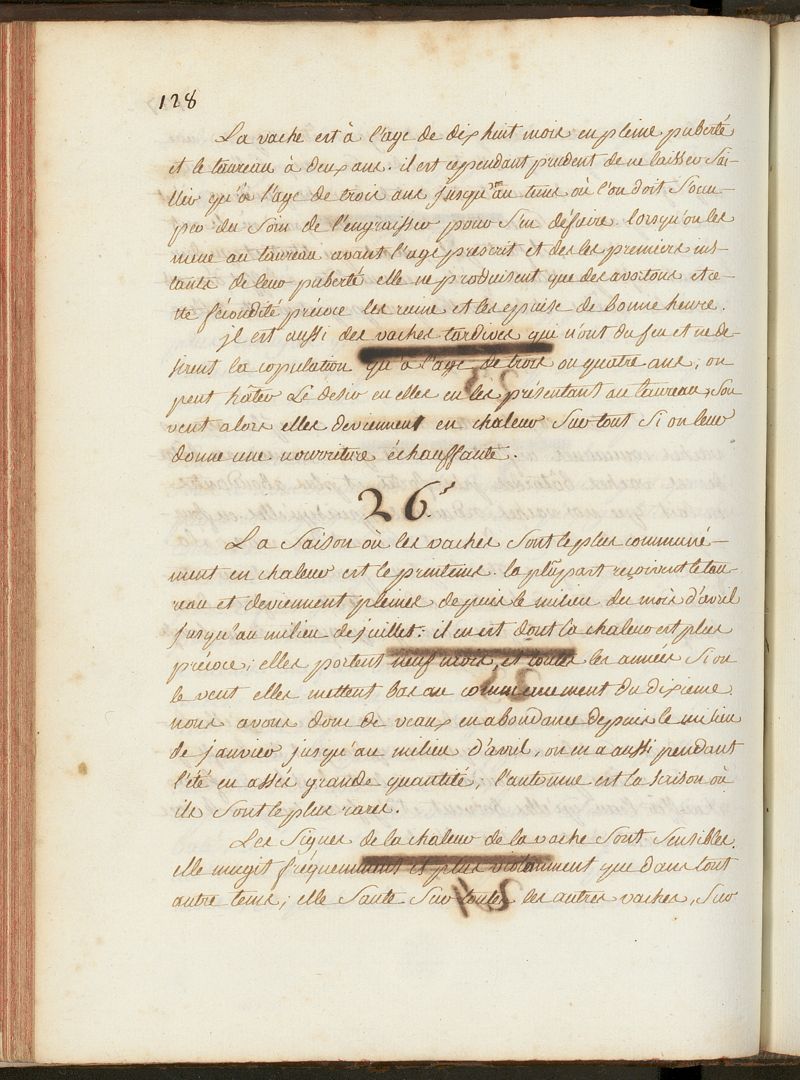 128
La vache est à l'age de dix huit mois en pleine puberté
et le taureau à deux ans. il est cependant prudent de ne laisser sai-
llir qu'à l'age de trois ans jusqu'au tems où l'on doit s'ocu-
per du soin de l'engraisser pour s'en défaire. lorsqu'on les
mene au taureau avant l'age prescrit et des les premiers ins-
tants de leur puberté elle ne produisent que des avortons et ce-
tte fécondité précoce les ruine et les epuise de bonne heure.
jl est aussi des vaches tardives qui n'ont du feu et ne de-
sirent la copulation qu'à l'age de trois ou quatre ans, on
peut hâter le desir en elles en les présentant au taureau, sou
vent alors elles deviennent en chaleur sur tout si on leur
donne une nourriture échauffante.
26.
La saison où les vaches sont le plus communé-
ment en chaleur est le printems. la plûpart reçoivent le tau-
reau et deviennent pleines depuis le milieu du mois d'avril
jusqu'au milieu de juillet: il en est dont la chaleur est plus
précoce; elles portent neuf mois, et toutes les années si on
le veut elles mettent bas au commencement du dixieme.
nous avons donc de veaux en abondance depuis le milieu
de janvier jusqu'au milieu d'avril, on en a aussi pendant
l'été en assés grande quantité; l'automne est la saison où
ils sont le plus rares.
Les signes de la chaleur de la vache sont sensibles.
elle mugit fréquemment et plus violamment que dans tout
autre tems; elle saute sur toutes les autres vaches, sur